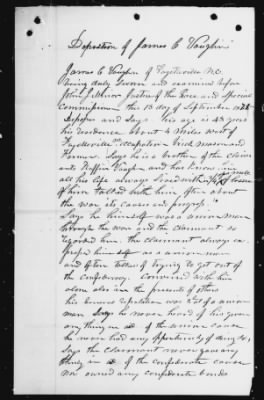 Deposition of James C Vaughn
James C Vaughn of Fayetteville N.C.
being duly sworn and examined before
John J. Minor Justice of the Peace and Special
Commissioner this 13 day of September 187
deposes and says his age is 48 years
his residence about 4 miles west of
Fayetteville occupation brick mason and
Farmer. Says he is a brother of the claim
ant Ruffin Vaughn and has known
all his life always lived within
of him talked with him often about
the war its causes and progress
Says he himself was a union man
through the war and the claimant so
regarded him. the claimant always ex
pressed himself as a union man
and often talked of trying to get out of
the Confederacy. Conversed with him
alone also in the presence of others
his general reputation was that of a union
man Says he never heard of his giver
any thing in aid of the union cause
he never had any opportunity of doing so,
Says the claimant never gave any
thing in aid of the confederate cause
nor owned any confederate bonds